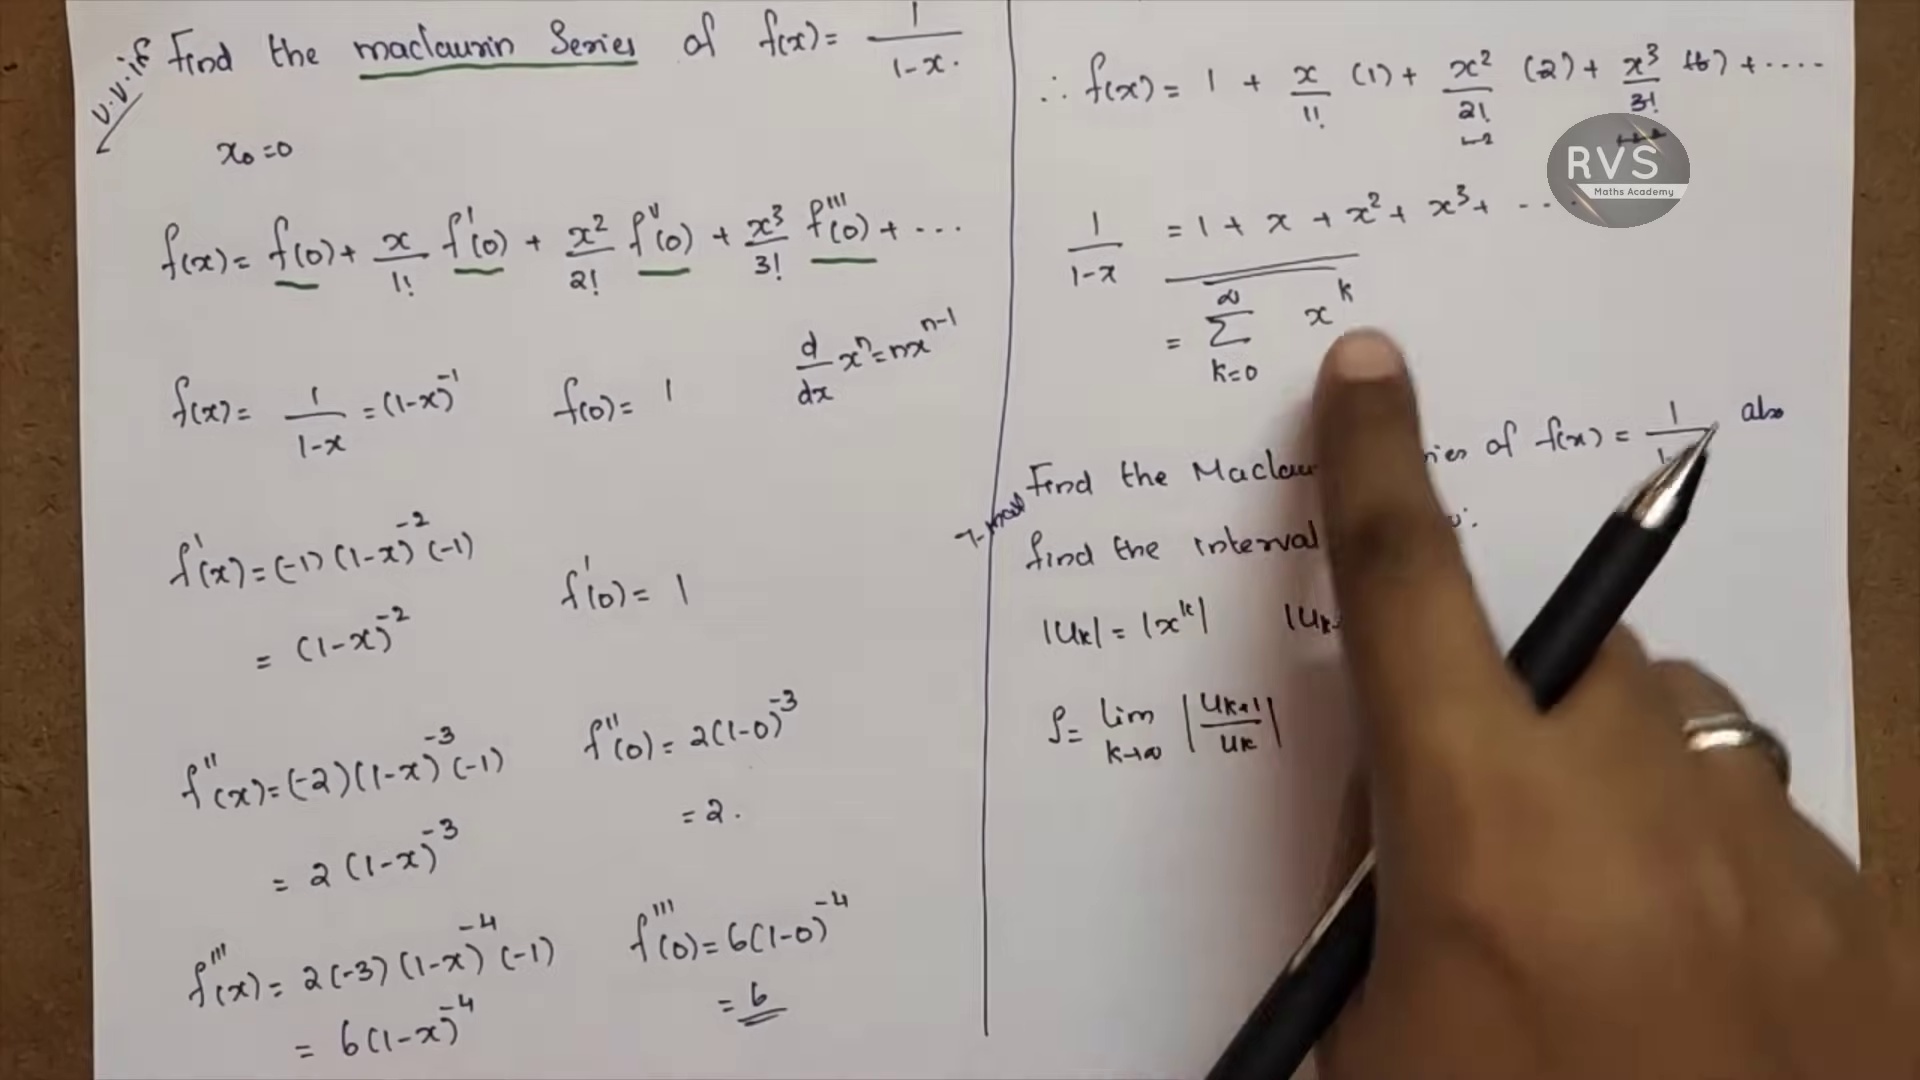 v.v.if Find the maclaurin Series of f(x) = 1/1-x.
x₀=0
f(x) = f(0) + x/1! f'(0) + x²/2! f''(0) + x³/3! f'''(0) + ...
d/dx xⁿ = nxⁿ⁻¹
f(x) = 1/1-x = (1-x)⁻¹ f(0) = 1
f'(x) = (-1) (1-x)⁻² (-1)
= (1-x)⁻² f'(0) = 1
f''(x) = (-2)(1-x)⁻³ (-1) f''(0) = 2(1-0)⁻³
= 2 (1-x)⁻³ = 2.
f'''(x) = 2(-3) (1-x)⁻⁴ (-1) f'''(0) = 6(1-0)⁻⁴
= 6(1-x)⁻⁴ = 6
∴ f(x) = 1 + x/1! (1) + x²/2! (2) + x³/3! (6) + ....
RVS
Maths Academy
1/1-x = 1 + x + x² + x³ + ...
= ∞ Σ k=0 xᵏ
Find the Maclau of f(x) = 1/1- also
find the interval
|Uk| = |xᵏ| |Uk
ρ = lim k→∞ |Uk+1/Uk|